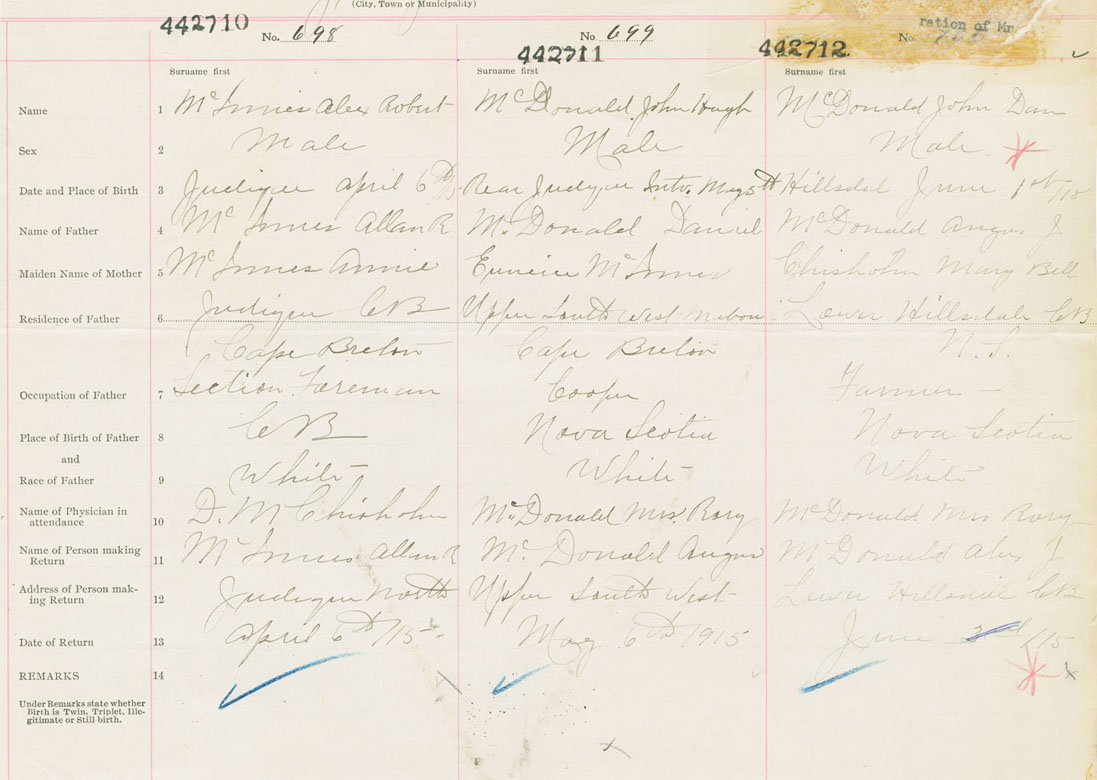 (City, Town or Municipality)
442710 No. 698
No. 699 442711
442712 No. ration of Mr
Surname first Surname first Surname first
Name 1 McInnes Alex Robert McDonald John Hugh McDonald John Dan
Sex 2 Male Male Male
Date and Place of Birth 3 Judique April 6th Rear Judique Intv. May 5th Hillsdal June 1st
Name of Father 4 McInnes Allan R McDonald Daniel McDonald Angus J.
Maiden Name of Mother 5 McInnes Annie Eunice McInnes Chisholm Mary Bell
Residence of Father 6 Judique CB Upper South West Mabou Lower Hillsdale CB
Cape Breton Cape Breton N.S.
Occupation of Father 7 Section Foreman Cooper Farmer
Place of Birth of Father 8 CB Nova Scotia Nova Scotia
and
Race of Father 9 White White White
Name of Physician in
attendance 10 D. M. Chisholm McDonald Mrs. Rory McDonald Mrs Rory
Name of Person making
Return 11 McInnes Allan R McDonald Angus McDonald Alex J
Address of Person mak-
ing Return 12 Judique North Upper South West Lower Hillsdal CB
Date of Return 13 April 6th /15 May 6th 1915 June 3rd /15
REMARKS 14
Under Remarks state whether
Birth is Twin, Triplet, Ille-
gitimate or Still birth.